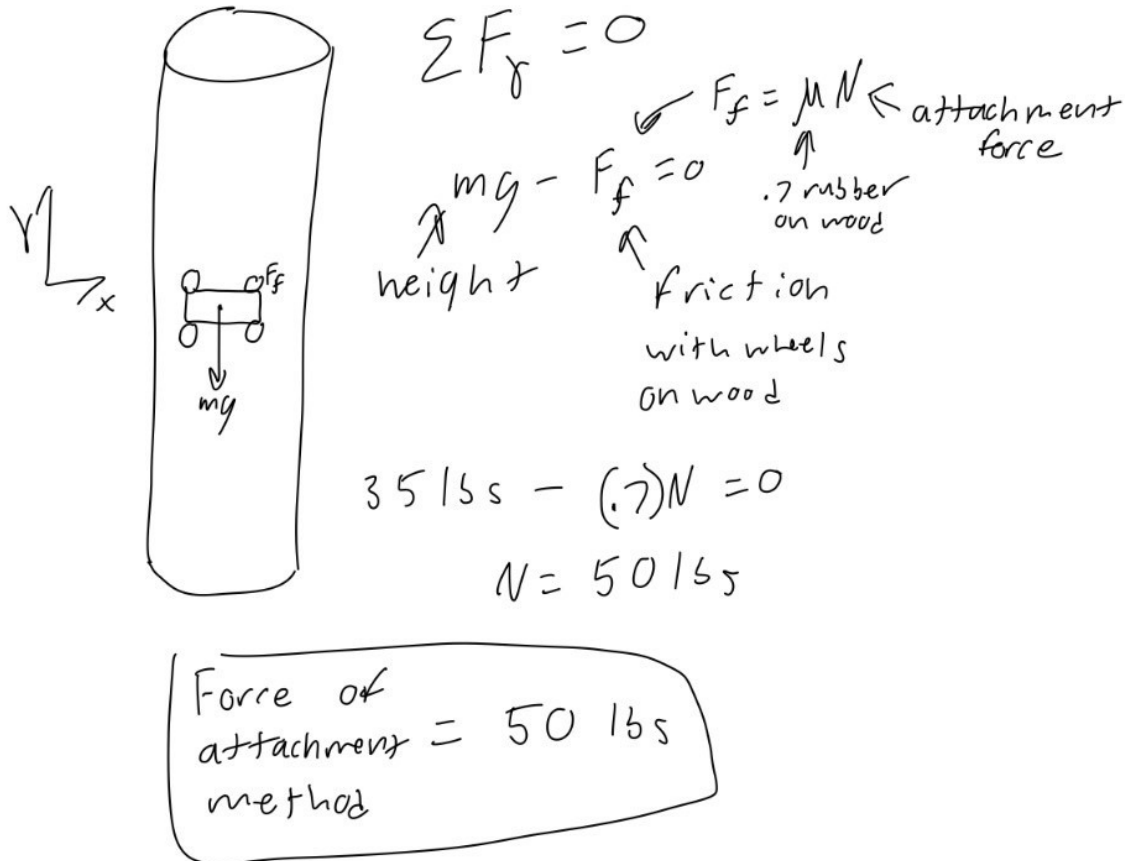 ΣF_Y = 0
F_f = μN ← attachment
force
mg - F_f = 0
.7 rubber
on wood
weight
friction
with wheels
on wood
Y
x
F_f
mg
35 lbs - (.7)N = 0
N = 50 lbs
Force of
attachment = 50 lbs
method